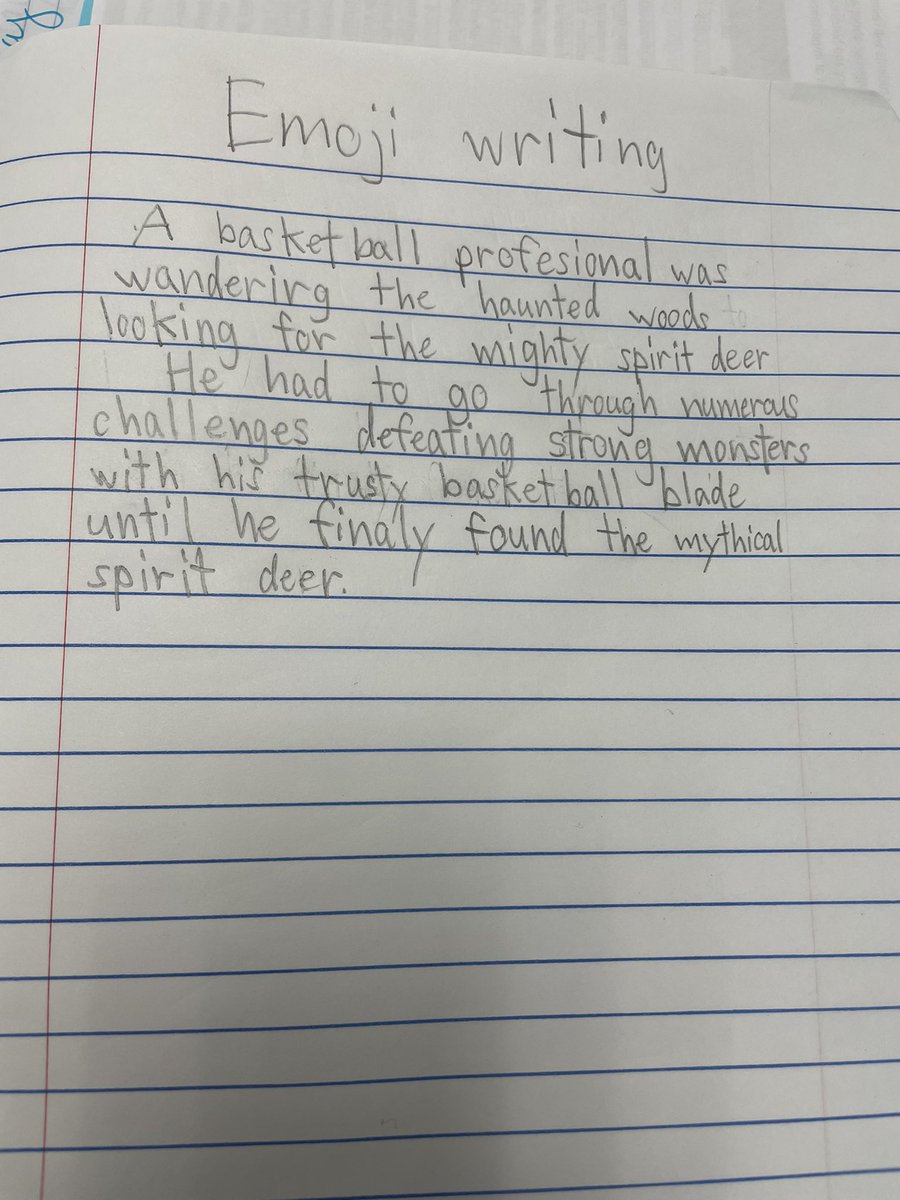 Emoji writing
A basketball profesional was
wandering the haunted woods
looking for the mighty spirit deer
He had to go through numerous
challenges defeating strong monsters
with his trusty basketball blade
until he finaly found the mythical
spirit deer.